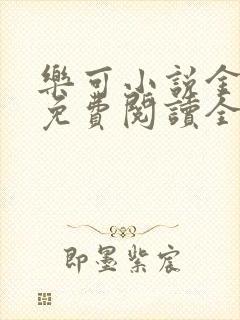 樂可小説全
免費閱讀全
即墨紫宸